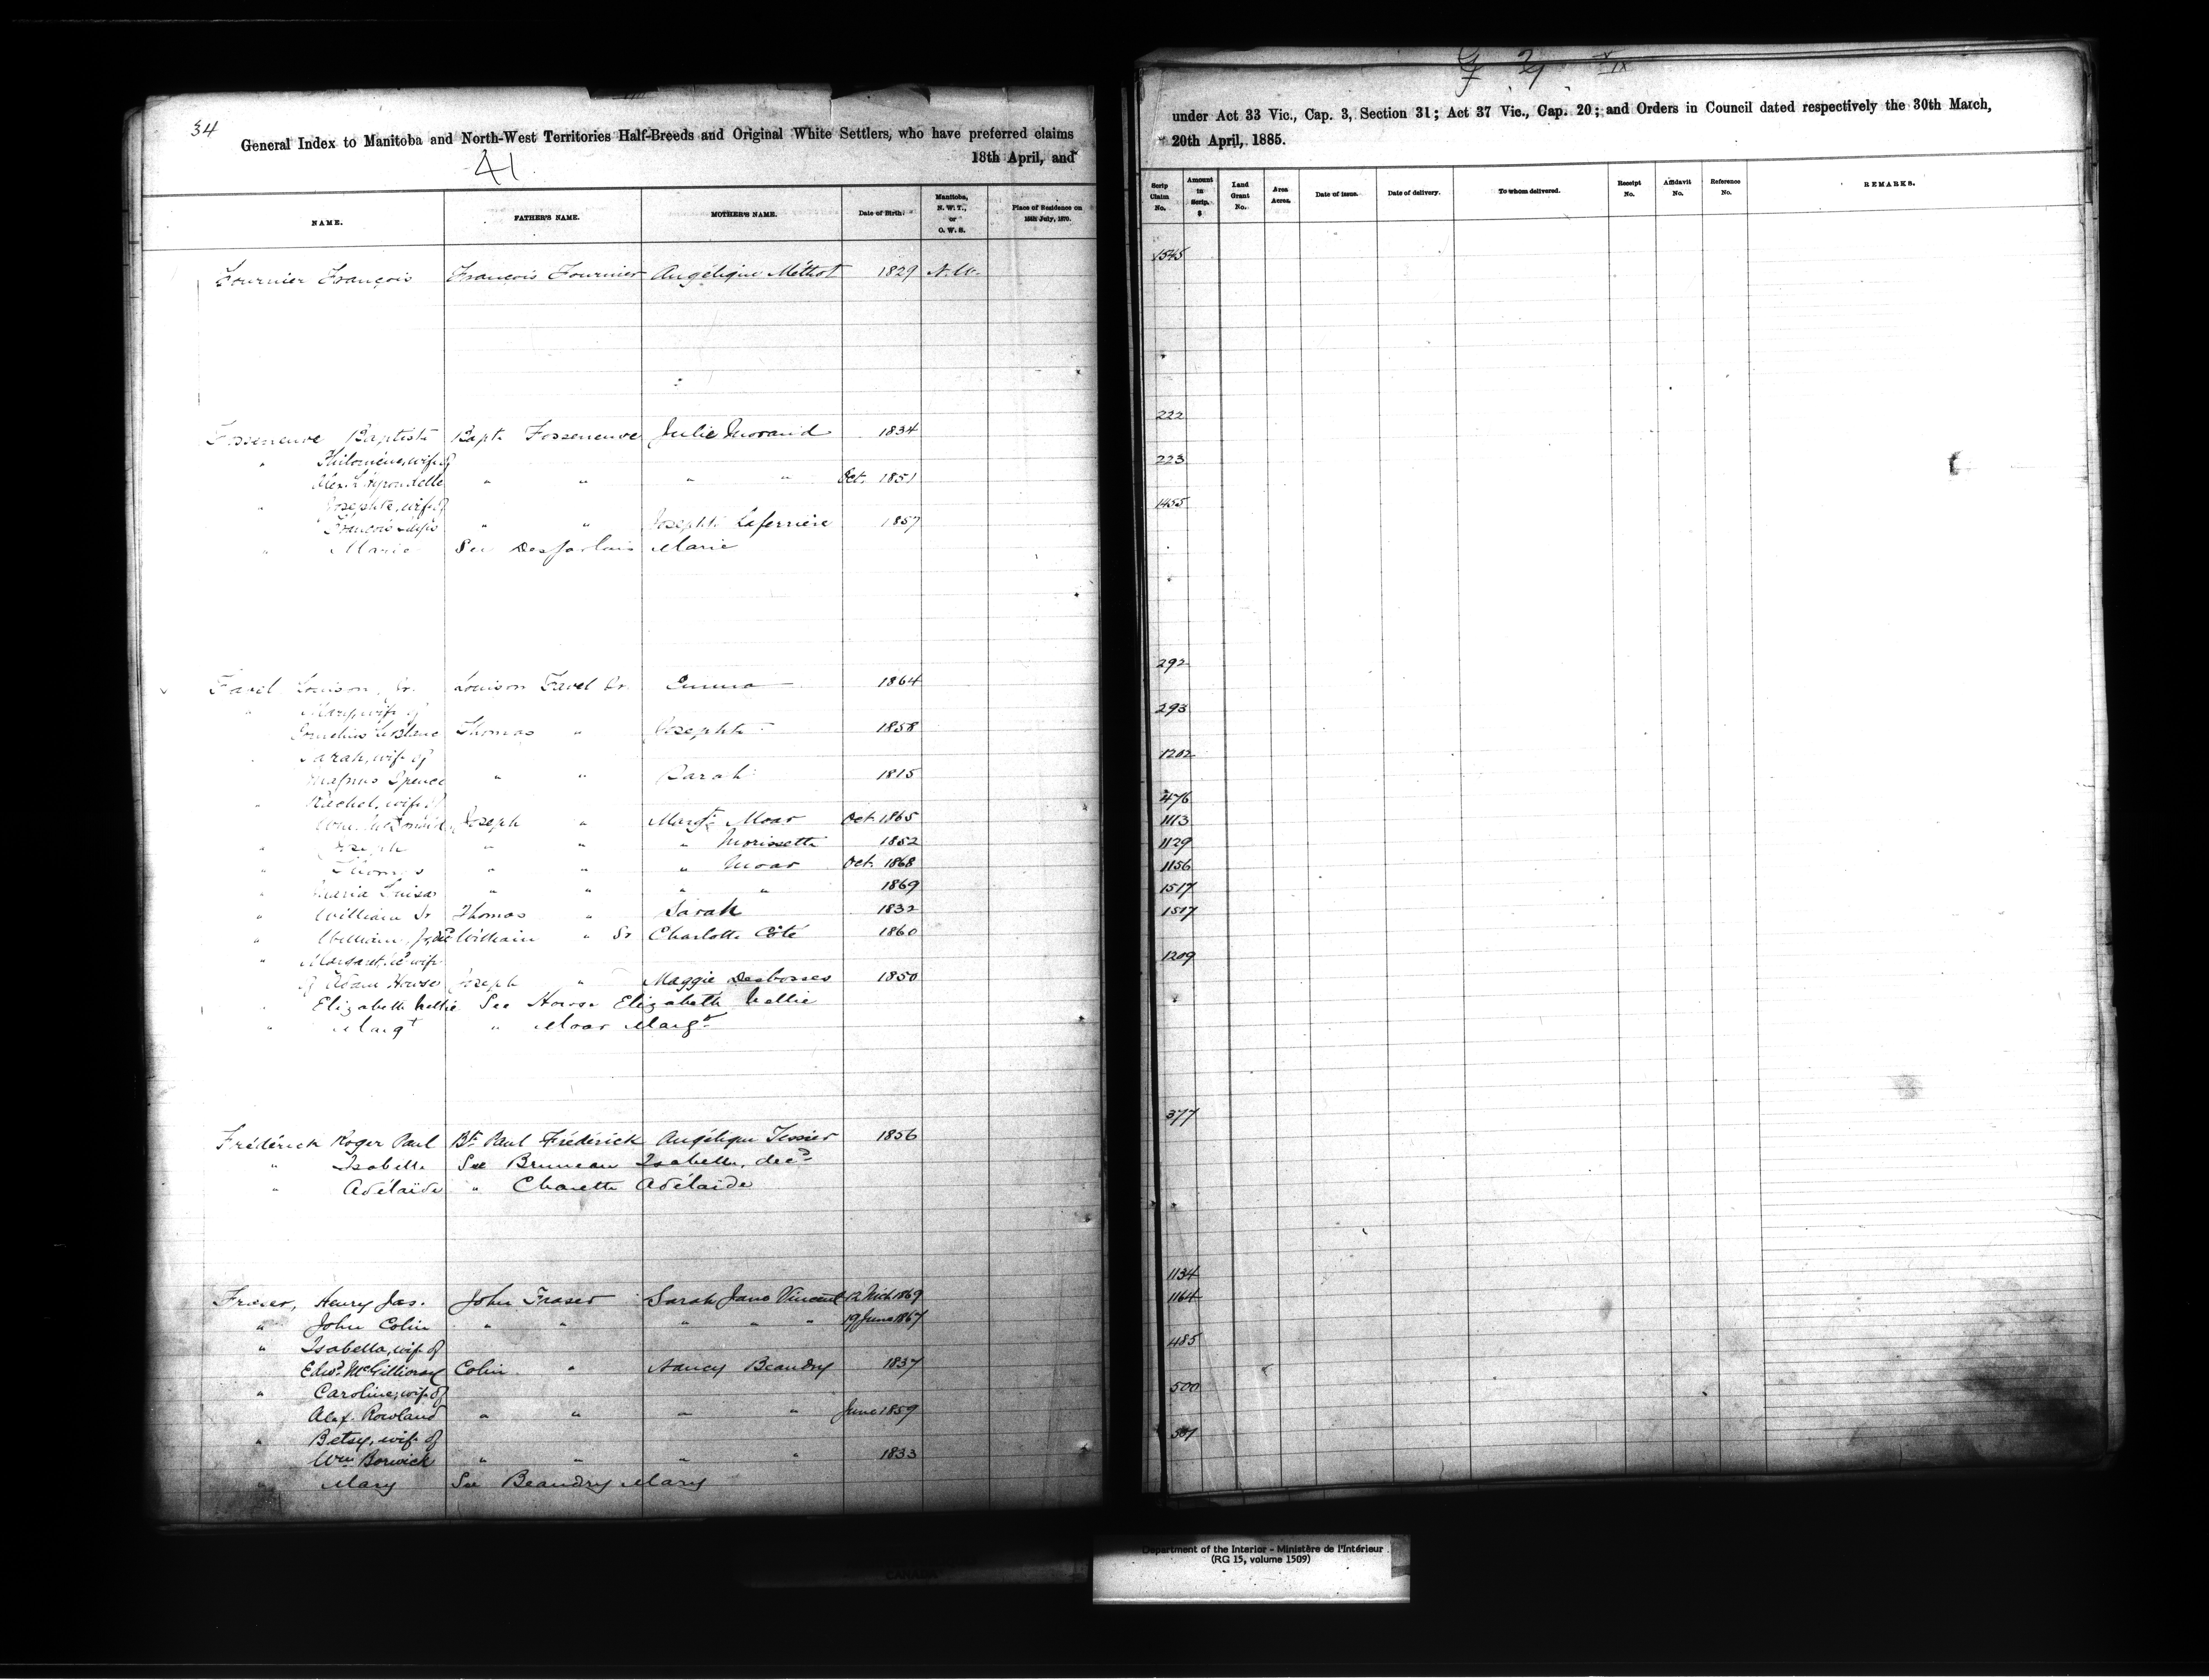 34
General Index to Manitoba and North-West Territories Half-Breeds and Original White Settlers, who have preferred claims
41
18th April, and
NAME. FATHER'S NAME. MOTHER'S NAME. Date of Birth. Manitoba, N. W. T., or O. W. S. Place of Residence on 15th July, 1870.
Fournier François François Fournier Angélique Méthot 1829 N.W.
Fosseneuve Baptiste Bapt. Fosseneuve Julie Morand 1834
" Philomène, wife of
Alex. " " " " Oct. 1851
" Josephte, wife of
François " " Josephte Laferrière 1857
" Marie See Desjarlais Marie
Favel Louison, Jr. Louison Favel Sr. Emma 1864
" Mary, wife of
Cornelius LeBlanc Thomas " Josephte 1858
" Sarah, wife of
Magnus Spence " " Sarah 1815
" Rachel, wife of
Wm. Joseph " Margt. Moar Oct. 1865
" Joseph " " " Morissette 1852
" Thomas " " " Moar Oct. 1868
" Maria Luisa " " " " 1869
" William Sr Thomas " Sarah 1832
" William, Jr, William " Sr Charlotte Coté 1860
" Margaret, wife
of Adam Howse Joseph " Maggie Desbosses 1850
" Elizabeth Nellie See Howse Elizabeth Nellie
" Margt " Moar Margt
Frédérick Roger Paul Bt. Paul Frédérick Angélique Tessier 1856
" Isabelle See Bruneau Isabelle, decd
" Adélaïde " Charette Adélaïde
Fraser, Henry Jas. John Fraser Sarah Jane Vincent 12 Mch 1869
" John Colin " " " " " 19 June 1867
" Isabella, wife of
Edwd. McGillivray Colin " Nancy Beaudry 1837
" Caroline, wife of
Alex. Rowland " " " " June 1859
" Betsy, wife of
Wm Borwick " " " " 1833
" Mary See Beaudry Mary
under Act 33 Vic., Cap. 3, Section 31; Act 37 Vic., Cap. 20; and Orders in Council dated respectively the 30th March,
20th April, 1885.
Scrip Claim No. Amount in Scrip. $ Land Grant No. Area Acres. Date of issue. Date of delivery. To whom delivered. Receipt No. Affidavit No. Reference No. REMARKS.
1545
222
223
1455
292
293
1202
476
1113
1129
1156
1517
1517
1209
377
1134
1164
485
500
501
Department of the Interior - Ministère de l'Intérieur
(RG 15, volume 1509)
CANADA